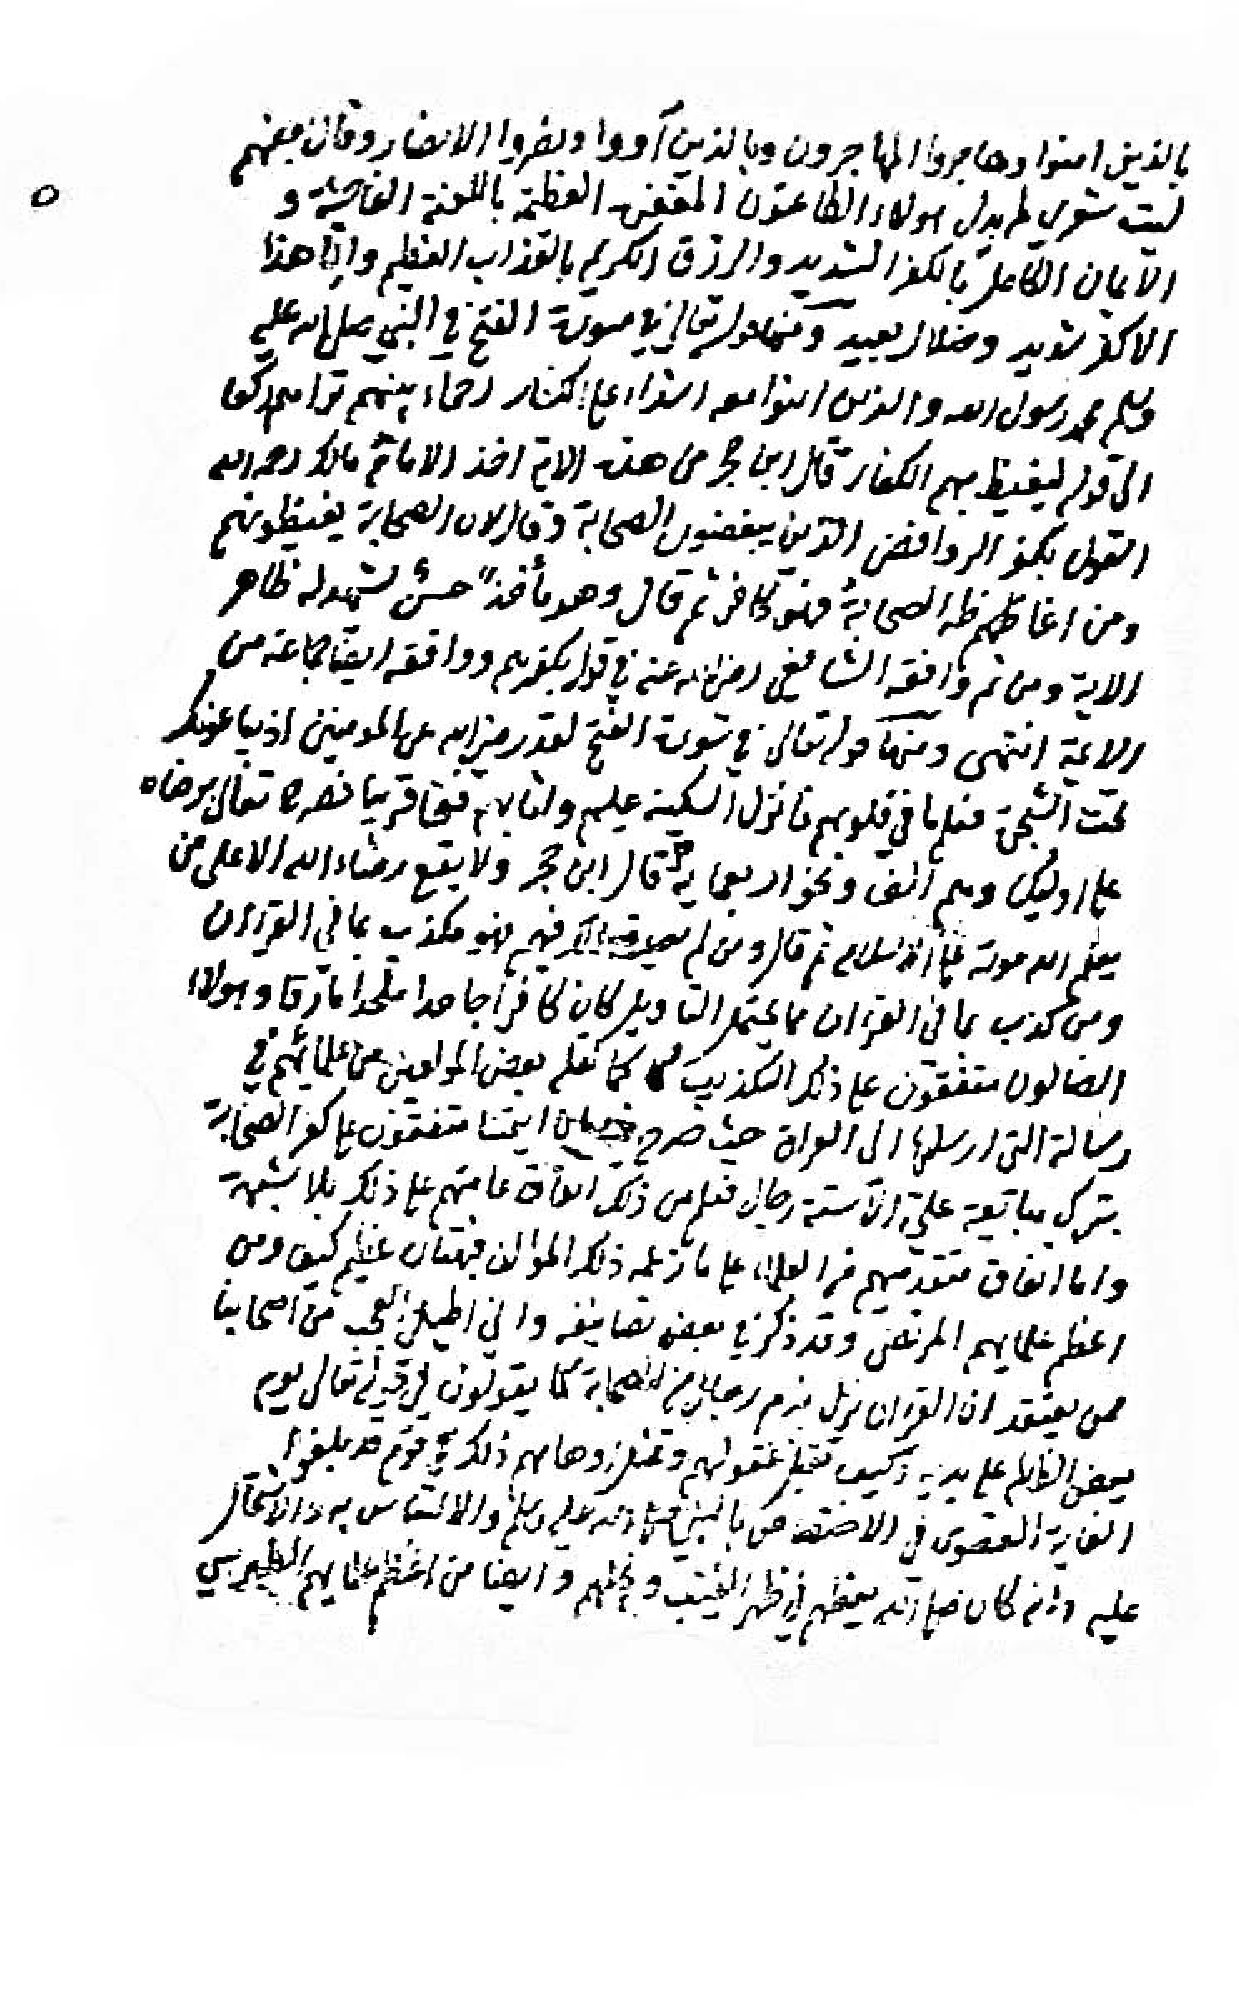 ٥
بالذين امنوا وهاجروا المهاجرون وبالذين آووا ونصروا الانصار وقال بعضهم
ليت شعري لم بدل هولاء الطاعنون المغفرة العظيمة باللعنة الفاحشة و
الايمان الكامل بالكفر الشديد والرزق الكريم بالعذاب العظيم وان هذا
الا كفر شديد وضلال بعيد ومنها قوله تعالى في سورة الفتح في النبي صلى الله عليه
وسلم محمد رسول الله والذين امنوا معه اشداء على الكفار رحماء بينهم تراهم ركعا
الى قوله ليغيظ بهم الكفار قال ابن حجر من هذه الاية اخذ الامام مالك رحمه الله
القول بكفر الروافض الذين يبغضون الصحابة وقال لان الصحابة يغيظونهم
ومن اغاظهم الصحابة فهو كافر ثم قال وهو مأخذ حسن يشهد له ظاهر
الاية ومن ثم وافقه الشافعي رضي الله عنه في قوله بكفرهم ووافقه ايضا جماعة من
الائمة انتهى ومنها قوله تعالى في سورة الفتح لقد رضي الله عن المومنين اذ يبايعونك
تحت الشجرة فعلم ما في قلوبهم فانزل السكينة عليهم واثابهم فتحا قريبا فصرح تعالى برضاه
على اوليك وهم الف ونحو اربعماية قال ابن حجر ولا يقع رضاء الله الا على من
يعلم الله موته على الاسلام ثم قال ومن لم يصدق فيهم فهو مكذب بما في القرءان
ومن كذب بما في القرءان مما يحتمل التاويل كان كافرا جاحدا ملحدا مارقا وهولاء
الضالون متفقون على ذلك التكذيب كما نقله بعض المولعين من علمائهم في
رسالة التي ارسلها الى الهراة حيث صرح ايمتنا متفقون على كفر الصحابة
بترك مبايعة علي الا ستة رجال فعلم من ذلك اتفاق عامتهم على ذلك بلا شبهة
واما اتفاق متقدميهم من العلماء على ما زعمه ذلك المؤالف فبهتان عظيم كيف ومن
اعظم علمايهم المرتضى وقد ذكر في بعض تصانيفه واني اطيل العجب من اصحابنا
ممن يعتقد ان القرءان نزل بذم رجال من الصحابة كما يقولون في قوله تعالى يوم
يعض الظالم على يديه وكيف تقبل عقولهم ذلك في قوم قد بلغوا
الغاية القصوى في الاختصاص بالنبي صلى الله عليه وسلم والالتباس به
عليه وانه كان صلى الله يعظهم في ظهر الغيب و وايضا من اعظم علمايهم الطبرسي